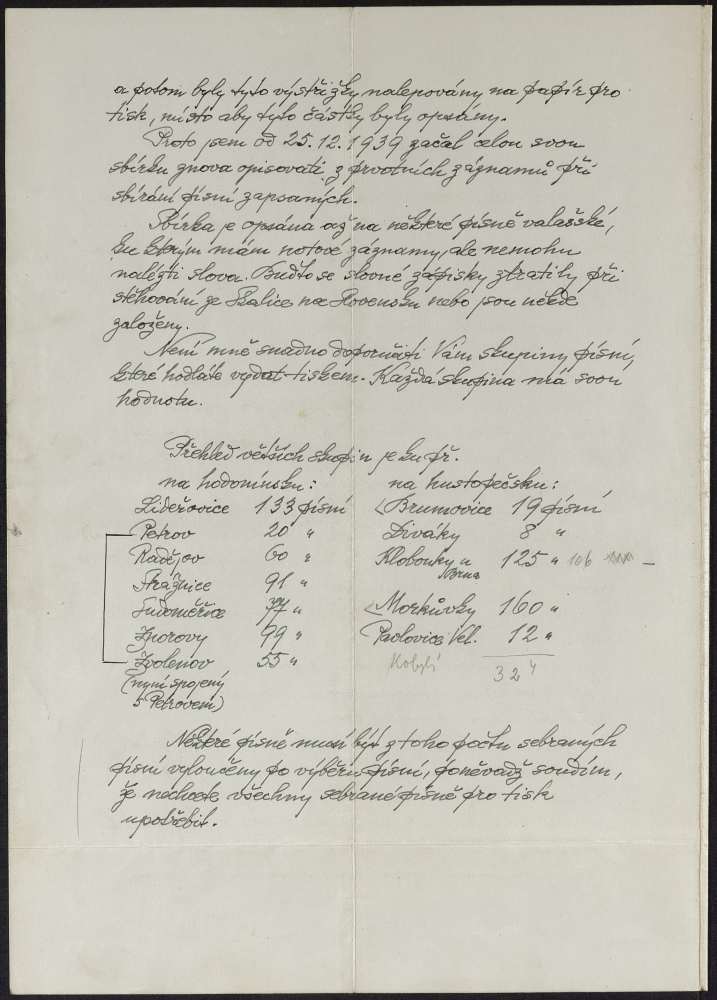 a potom byly tyto výstřižky nalepovány na papír pro
tisk, místo aby tyto částky byly opsány.
Proto jsem od 25.12.1939 začal celou svou
sbírku znova opisovati z prvotních záznamů při
sbírání písní zapsaných.
Sbírka je opsána až na některé písně valašské,
ku kterým mám notové záznamy, ale nemohu
nalézti slova. Buďto se slovné zápisky ztratily při
stěhování ze Skalice na Slovensku nebo jsou někde
založeny.
Není mně snadno doporučiti Vám skupiny písní,
které hodláte vydat tiskem. Každá skupina má svou
hodnotu.
Přehled větších skupin je ku př.
na hodonínsku:
Lideřovice 133 písní
Petrov 20 "
Radějov 60 "
Strážnice 91 "
Sudoměřice 77 "
Znorovy 99 "
Zvolenov 55 "
(nyní spojený
s Petrovem)
na hustopečsku:
Brumovice 19 písní
Diváky 8 "
Klobouky u 125 " 106
Brna
Morkůvky 160 "
Pavlovice Vel. 12 "
Kobylí 324
Některé písně musí být z toho počtu sebraných
písní vyloučeny po výběru písní, poněvadž soudím,
že nechcete všechny sebrané písně pro tisk
upotřebit.